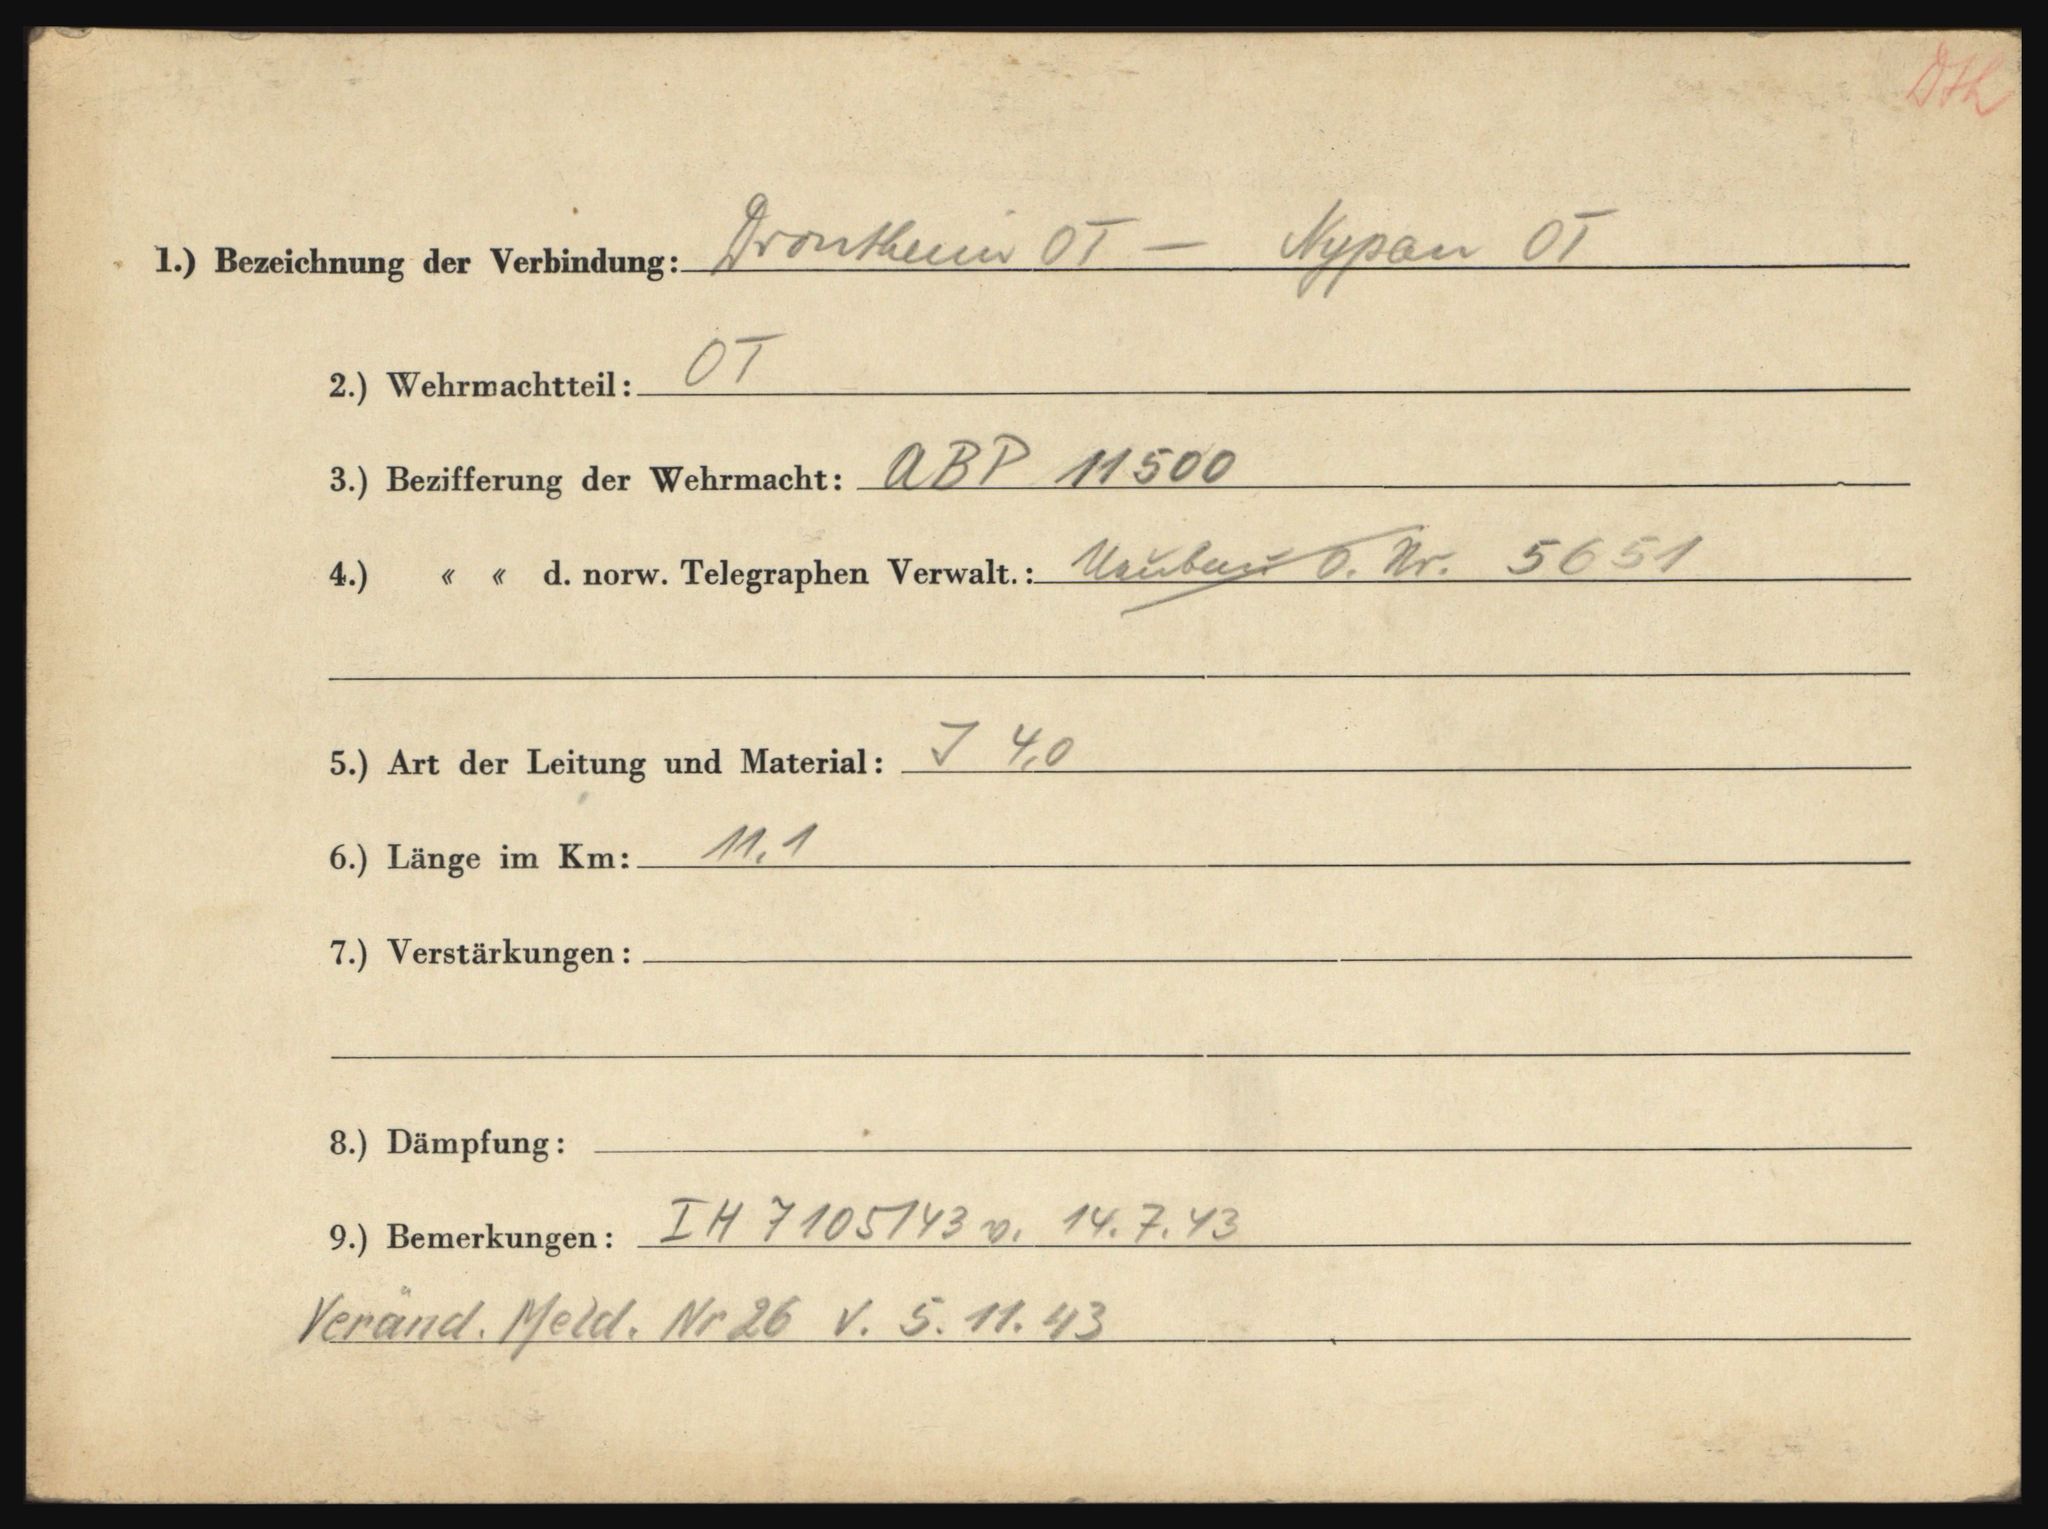 Dth
1.) Bezeichnung der Verbindung: Drontheim OT – Nypan OT
2.) Wehrmachtteil: OT
3.) Bezifferung der Wehrmacht: ABP 11500
4.) « « d. norw. Telegraphen Verwalt.: Neubau O. Nr. 5651
5.) Art der Leitung und Material: J 4,0
6.) Länge im Km: 11.1
7.) Verstärkungen:
8.) Dämpfung:
9.) Bemerkungen: IH 7105/43 v. 14.7.43
Veränd. Meld. Nr 26 v. 5.11.43